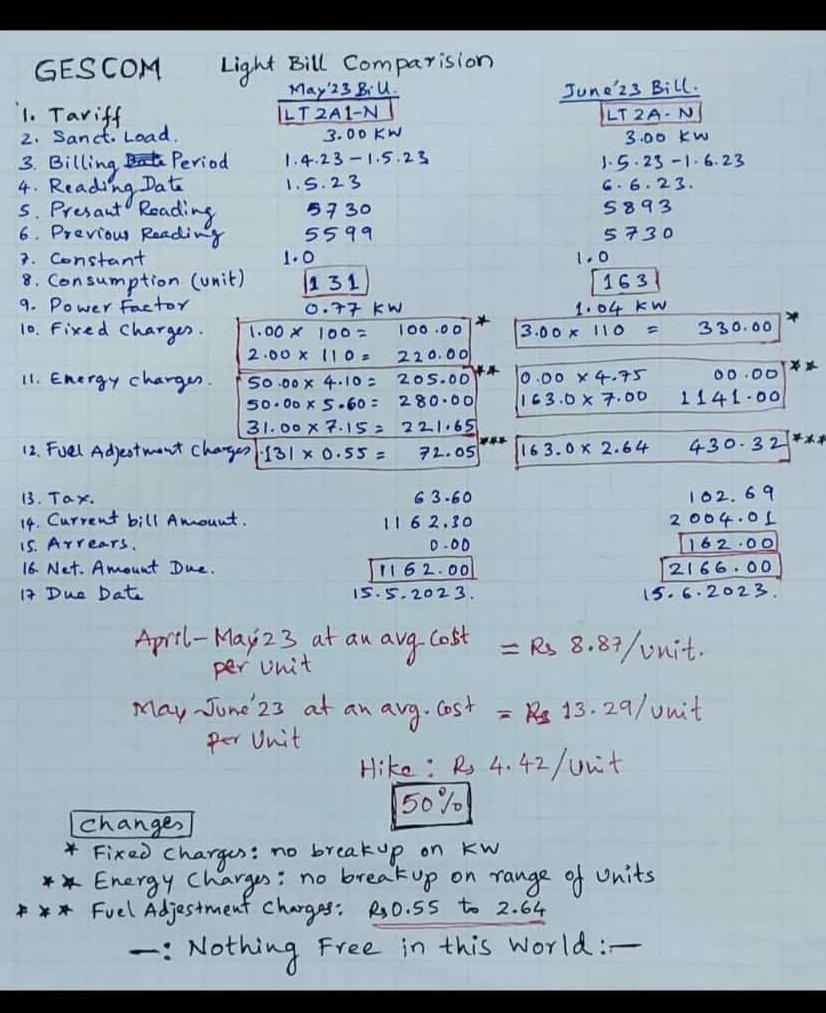 GESCOM Light Bill Comparision
May'23 Bill. June'23 Bill.
1. Tariff LT 2A1-N LT 2A-N
2. Sanct. Load. 3.00 KW 3.00 KW
3. Billing Period 1.4.23 - 1.5.23 1.5.23 - 1.6.23
4. Reading Date 1.5.23 6.6.23.
5. Presant Reading 5730 5893
6. Previous Reading 5599 5730
7. Constant 1.0 1.0
8. Consumption (unit) 131 163
9. Power Factor 0.77 KW 1.04 KW
10. Fixed Charges. 1.00 x 100 = 100.00 * 3.00 x 110 = 330.00 *
2.00 x 110 = 220.00
11. Energy charges. 50.00 x 4.10 = 205.00 ** 0.00 x 4.75 00.00 **
50.00 x 5.60 = 280.00 163.0 x 7.00 1141.00
31.00 x 7.15 = 221.65
12. Fuel Adjestment Charges 131 x 0.55 = 72.05 *** 163.0 x 2.64 430.32 ***
13. Tax. 63.60 102.69
14. Current bill Amount. 1162.30 2004.01
15. Arrears. 0.00 162.00
16. Net. Amount Due. 1162.00 2166.00
17 Due Date 15.5.2023. 15.6.2023.
April-May'23 at an avg. Cost = Rs 8.87/unit.
per unit
May-June'23 at an avg. Cost = Rs 13.29/unit
per Unit
Hike: Rs 4.42/Unit
50%
Changes
* Fixed Charges: no breakup on KW
** Energy Charges: no breakup on range of units
*** Fuel Adjestment Charges: Rs 0.55 to 2.64
-: Nothing Free in this World :-